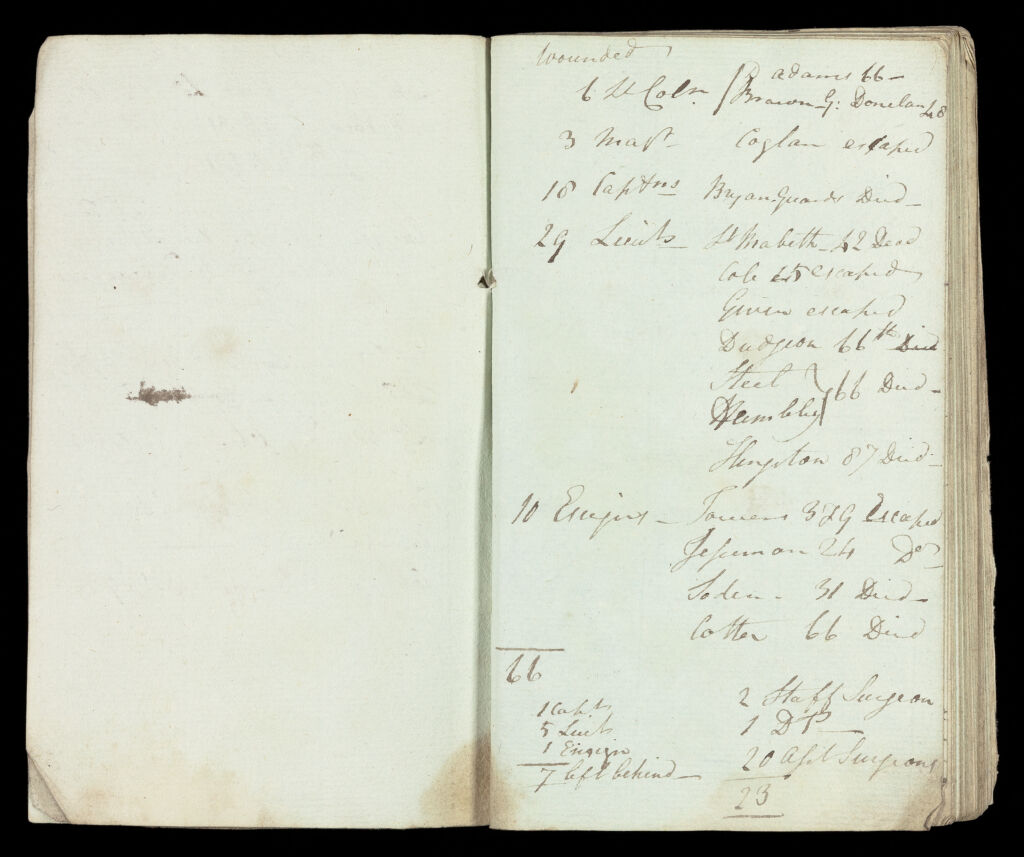 Wounded
6 Lt Coln. Adams 66 –
Brown – G: Donelan 48
3 Majr – Coglan escaped
18 Captns Bryan Guards Died –
29 Lieuts – Lt Mabeth – 42 Dead
Cole 45 escaped
Given escaped
Dudgeon 66th Died
Steel
Humbley 66 Died –
Hingston 87 Died –
10 Ensigns – Towers 3 29 Escaped
Jesseman 24 Do
Soden – 31 Died –
Cotter 66 Died
66
1 Capt 2 Staff Surgeon
5 Lieuts 1 Do
1 Ensign
7 left behind – 20 Asst Surgeons
23